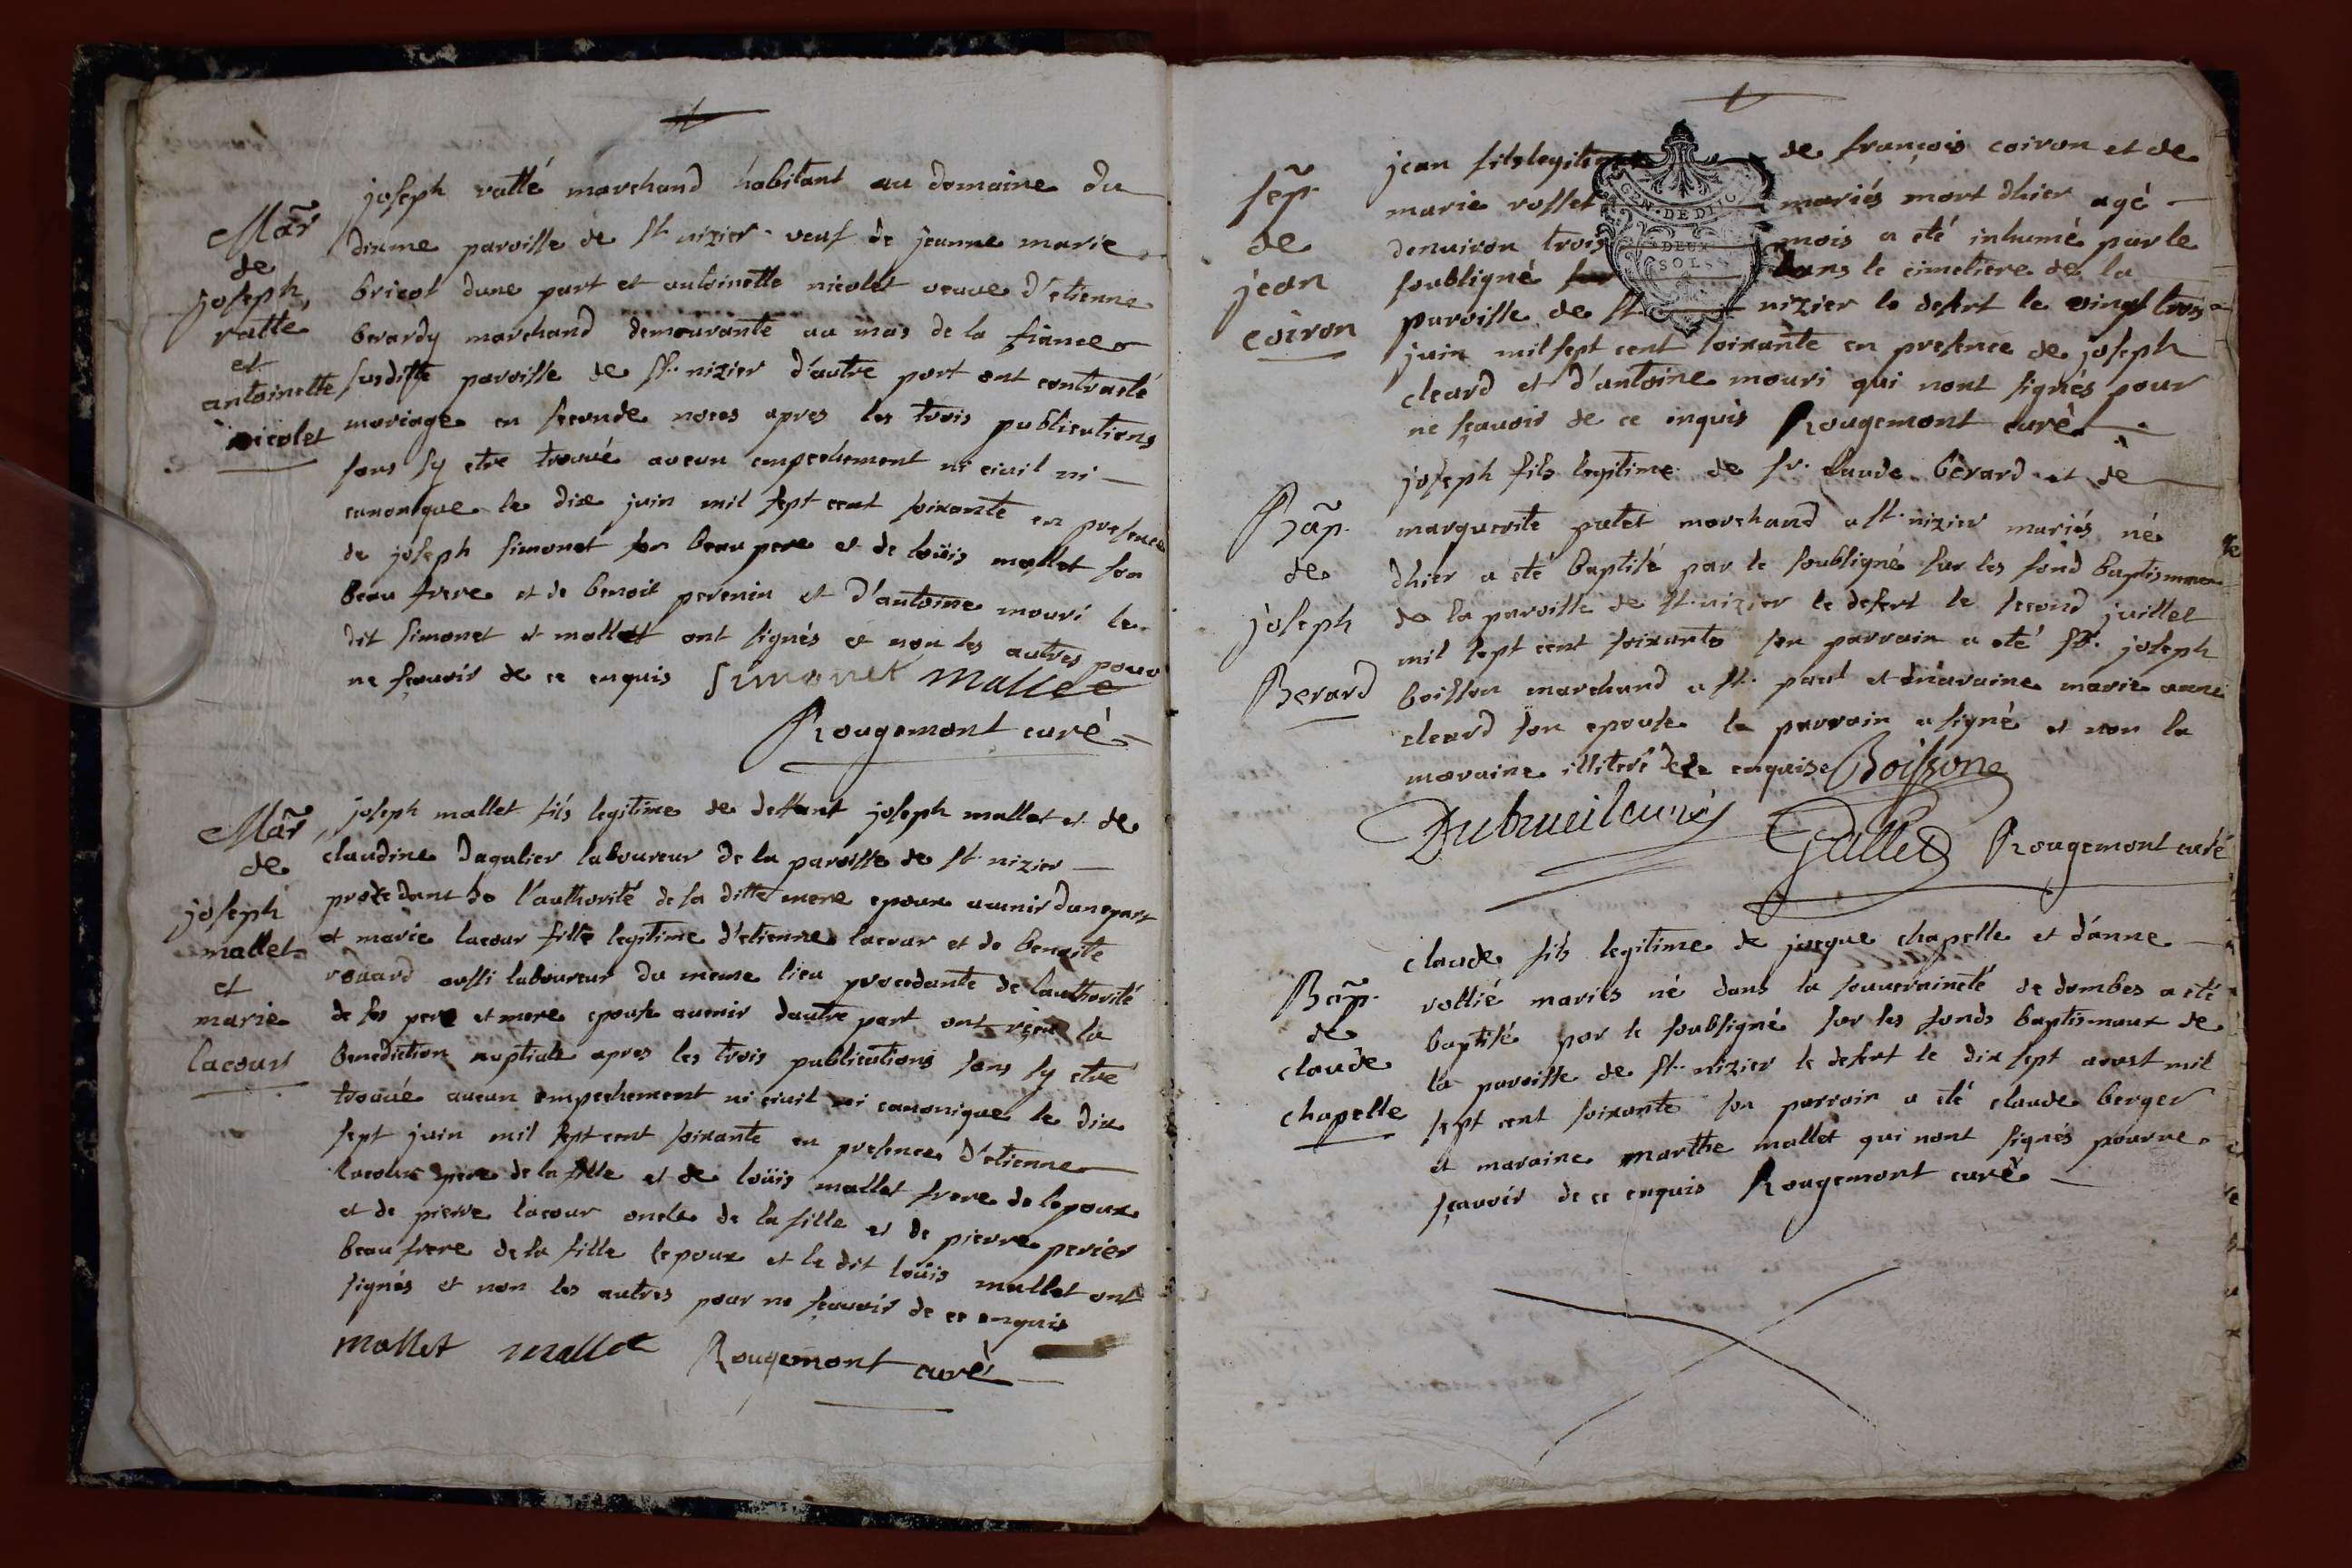 Mar̃
de
joseph
ratte
et
antoinette
nicolet
joseph ratté marchand habitant au domaine du
dixme paroisse de st nizier veuf de jeanne marie
bricot dune part et antoinette nicolet veuve d'etienne
berardy marchand demourante au mas de la fiance
susditte paroisse de st nizier d'autre part ont contracté
mariage en seconde noces apres les trois publications
sans sy etre trouvé aucun empechement ni civil ni
canonique le dix juin mil sept cent soixante en presence
de joseph simonet son beau pere et de loüis mallet son
beau frere et de benoit perenin et d'antoine mouri le
dit simonet et mallet ont signés et non les autres pour
ne sçavoir de ce enquis Simonet mallet
Rougemont curé
Mar̃
de
joseph
mallet
et
marie
lacour
joseph mallet fils legitime de deffunt joseph mallet et de
claudine Dagalier laboureur de la paroisse de st nizier
procedant de l'authorité de sa ditte mere epoux avenir dune part
et marie lacour fille legitime d'etienne lacour et de benoite
roüard aussi laboureur du meme lieu procedante de lauthorité
de ses pere et mere epouse avenir dautre part ont reçu la
benediction nuptiale apres les trois publications sans sy etre
trouvé aucun empechement ni civil ni canonique le dix
sept juin mil sept cent soixante en presence d'etienne
lacour pere de la fille et de loüis mallet frere de lepoux
et de pierre lacour oncle de la fille et de pierre perier
beau frere de la fille lepoux et le dit loüis mallet ont
signés et non les autres pour ne sçavoir de ce enquis
mallet mallet Rougemont curé
sep̃
de
jean
coiron
jean fils legitime de françois coiron et de
marie rosset mariés mort dhier agé
denviron trois mois a eté inhumé par le
soubsigné dans le cimetiere de la
paroisse de st nizier le desert le vingt trois
juin mil sept cent soixante en presence de joseph
cleard et d'antoine mouri qui nont signés pour
ne sçavoir de ce enquis Rougemont curé
GEN. DE DIJO
DEUX
SOLS
Bap̃
de
joseph
Berard
joseph fils legitime de sr. claude berard et de
marguerite patet marchand a st. nizier mariés né
dhier a eté baptisé par le soubsigné sur les fond baptismaux
de la paroisse de st. nizier le desert le second juillet
mil sept cent soixante son parrain a eté sr. joseph
boisson marchand a st. paul et maraine marie anne
cleard son epouse le parrain a signé et non la
maraine illiteré de ce enquise Boisson
Dubrueil curé Gallet Rougemont curé
Bap̃
de
claude
chapelle
claude fils legitime de jacque chapelle et d'anne
vollié mariés né dans la souveraineté de dombes a eté
baptisé par le soubsigné sur les fonds baptismaux de
la paroisse de st. nizier le desert le dix sept aoust mil
sept cent soixante son parrain a eté claude berger
et maraine marthe mallet qui nont signés pour ne
sçavoir de ce enquis Rougemont curé